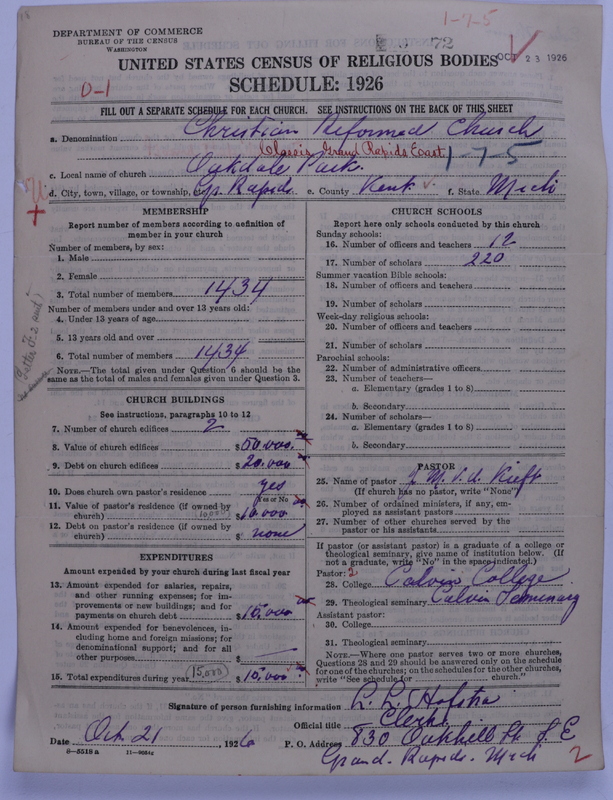 1-7-5
DEPARTMENT OF COMMERCE
BUREAU OF THE CENSUS
WASHINGTON
72
OCT 23 1926
UNITED STATES CENSUS OF RELIGIOUS BODIES
SCHEDULE: 1926
0-1
FILL OUT A SEPARATE SCHEDULE FOR EACH CHURCH. SEE INSTRUCTIONS ON THE BACK OF THIS SHEET
a. Denomination Christian Reformed Church
Classis Grand Rapids East 1-7-5
c. Local name of church Oakdale Park
d. City, town, village, or township, etc. Gr. Rapids e. County Kent f. State Mich
MEMBERSHIP
Report number of members according to definition of
member in your church
Number of members, by sex:
1. Male
2. Female
3. Total number of members 1434
Number of members under and over 13 years old:
4. Under 13 years of age
5. 13 years old and over
6. Total number of members 1434
NOTE.—The total given under Question 6 should be
same as the total of males and females given under Question 3.
CHURCH BUILDINGS
See instructions, paragraphs 10 to 12
7. Number of church edifices 2
8. Value of church edifices $50,000
9. Debt on church edifices $20,000
10. Does church own pastor's residence yes
Yes or No
11. Value of pastor's residence (if owned by
church) 10,000 $10,000
12. Debt on pastor's residence (if owned by
church) $ none
EXPENDITURES
Amount expended by your church during last fiscal year
13. Amount expended for salaries, repairs,
and other running expenses; for im-
provements or new buildings; and for
payments on church debt $15,000
14. Amount expended for benevolences,
including home and foreign missions; for
denominational support; and for all
other purposes $ —
15. Total expenditures during year $15,000
CHURCH SCHOOLS
Report here only schools conducted by this church
Sunday schools:
16. Number of officers and teachers 12
17. Number of scholars 220
Summer vacation Bible schools:
18. Number of officers and teachers
19. Number of scholars
Week-day religious schools:
20. Number of officers and teachers
21. Number of scholars
Parochial schools:
22. Number of administrative officers
23. Number of teachers—
a. Elementary (grades 1 to 8)
b. Secondary
24. Number of scholars—
a. Elementary (grades 1 to 8)
b. Secondary
PASTOR
25. Name of pastor Kieft
(If church has no pastor, write "None")
26. Number of ordained ministers, if any, em-
ployed as assistant pastors
27. Number of other churches served by the
pastor or his assistants
If pastor (or assistant pastor) is a graduate of a college or
theological seminary, give name of institution below. (If
not a graduate, write "No" in the space indicated.)
Pastor: 2
28. College Calvin College
29. Theological seminary Calvin Seminary
Assistant pastor:
30. College
31. Theological seminary
NOTE.—Where one pastor serves two or more churches,
Questions 28 and 29 should be answered only on the schedule
for one of the churches; on the schedules for the other churches,
write "See schedule for church."
Signature of person furnishing information L. L. Hofstra
Official title Clerk
Date Oct. 21, 1926 P. O. Address 830 Oakhill St. S E
8-5518 a
Grand Rapids. Mich
2